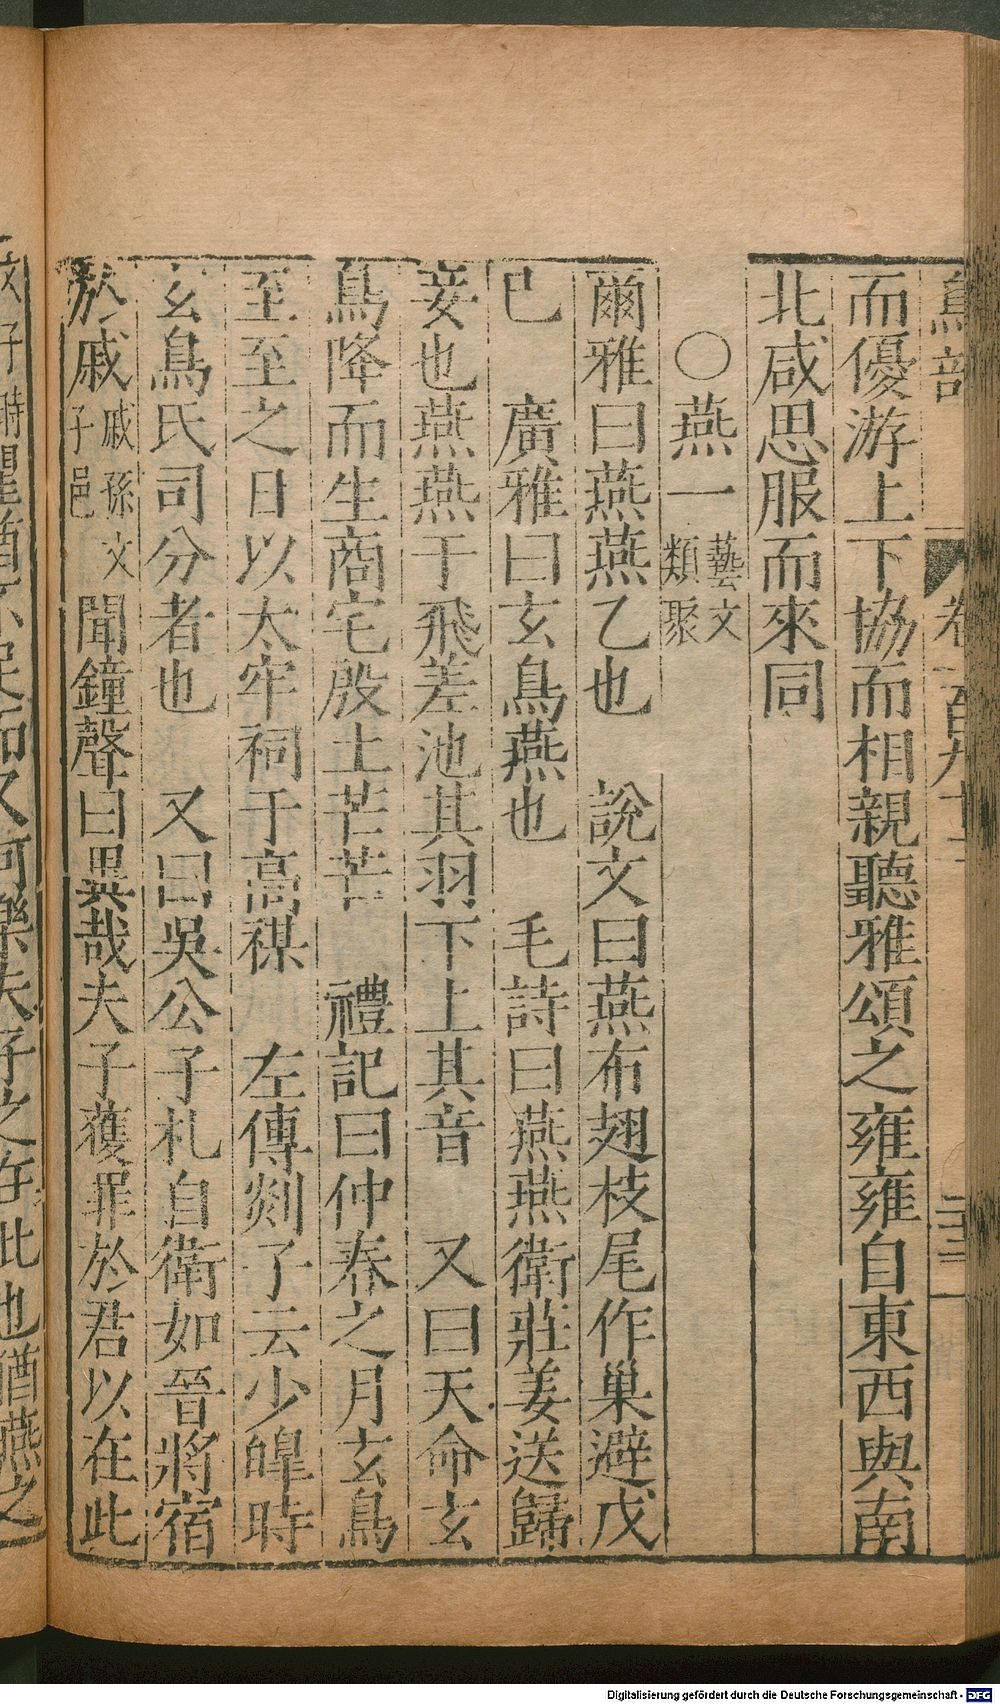 鳥部
卷一百九十
而優游上下協而相親聽雅頌之雍雍自東西與南
北咸思服而來同
○燕一藝文類聚
爾雅曰燕燕乙也　說文曰燕布翅枝尾作巢避戊
巳　廣雅曰玄鳥燕也　毛詩曰燕燕衛莊姜送歸
妾也燕燕于飛差池其羽下上其音　又曰天命玄
鳥降而生商宅殷土芒芒　禮記曰仲春之月玄鳥
至至之日以太牢祠于高禖　左傳剡子云少皥時
玄鳥氏司分者也　又曰吳公子札自衛如晉將宿
於戚戚孫文子邑聞鐘聲曰異哉夫子獲罪於君以在此
足而又何樂夫子之在此也猶燕之
Digitalisierung gefördert durch die Deutsche Forschungsgemeinschaft - DFG